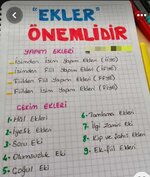 "EKLER"
ÖNEMLİDİR
YAPIM EKLERİ
İsimden İsim Yapım Ekleri (İİYE)
İsimden Fiil Yapım Ekleri (İFYE)
Fiilden Fiil Yapım Ekleri (FFYE)
Fiilden İsim Yapım Ekleri (FİYE)
ÇEKİM EKLERİ
1- Hâl Ekleri
2- İyelik Ekleri
3- Soru Eki
4- Olumsuzluk Eki
5- Çoğul Eki
6- Tamlama Ekleri
7- İlgi Zamiri Eki
8- Kip ve Şahıs Ekleri
9- Ek-fiil Ekleri